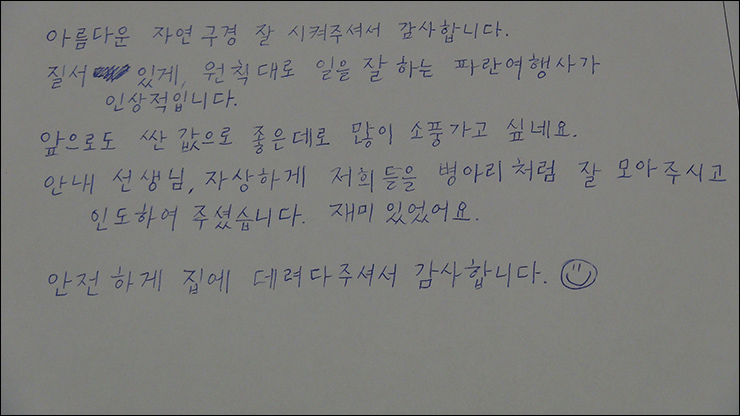 아름다운 자연구경 잘 시켜주셔서 감사합니다.
질서 있게, 원칙대로 일을 잘 하는 파란여행사가
인상적입니다.
앞으로도 싼 값으로 좋은데로 많이 소풍가고 싶네요.
안내 선생님, 자상하게 저희들을 병아리처럼 잘 모아주시고
인도하여 주셨습니다. 재미 있었어요.
안전하게 집에 데려다주셔서 감사합니다.